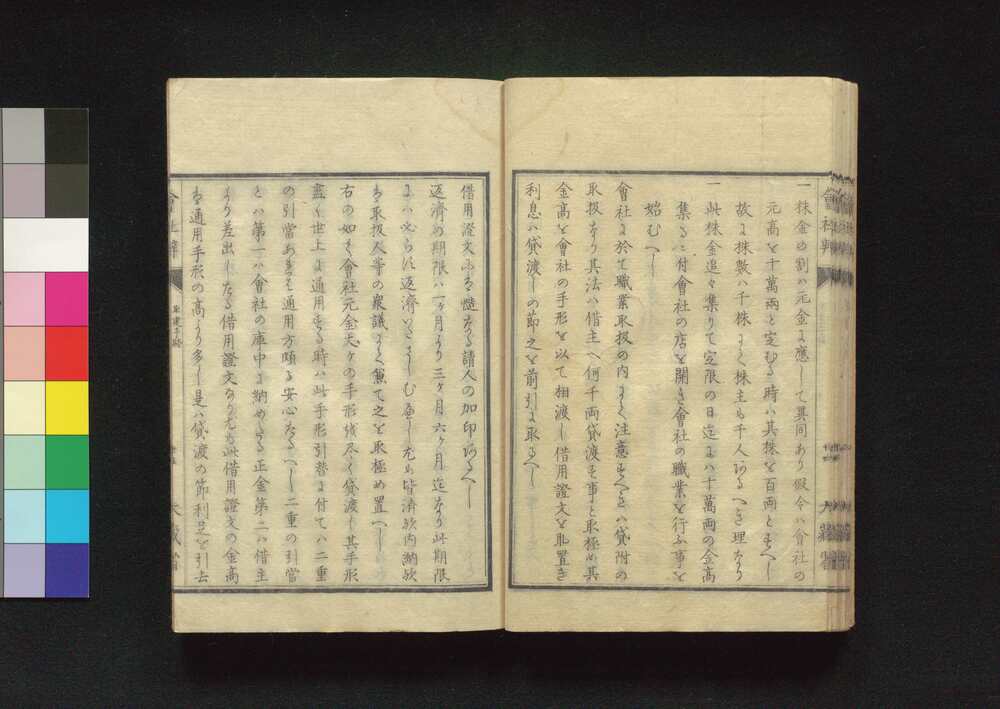 一株金の割ハ元金に應して異同あり假令ハ會社の
元高を十萬兩と定むる時ハ其株を百兩とすへし
故に株數ハ千株にて株主も千人あるへき理なり
一此株金追々集りて定限の日迄にハ十萬兩の金高
集るに付會社の店を開き會社の職業を行ふ事を
始むへし
會社に於て職業取扱の内にて注意すへきハ貸附の
取扱なり其法ハ借主へ何千兩貸渡す事と取極め其
金高を會社の手形を以て相渡し借用證文を取置き
利息ハ貸渡しの節之を前引に取るへし
借用證文にハ慥なる請人の加印あるへし
返濟の期限ハ一ヶ月より三ヶ月六ヶ月迄なり此期限
にハ必らす返濟いたさしむ へし尤も皆濟歟内納歟
ハ取扱人等の衆議にて兼て之を取極め置へし
右の如く會社元金丈ケの手形殘らす貸渡し其手形
盡く世上に通用する時ハ此手形引替に付てハ二重
の引當あるゆゑ通用方頗る安心なるへし二重の引當
とハ第一ハ會社の庫中に納めたる正金第二ハ借主
より差出したる借用證文なり尤も此借用證文の金高
ハ通用手形の高より多し是ハ貸渡の節利足を引去
會社辨
大藏省